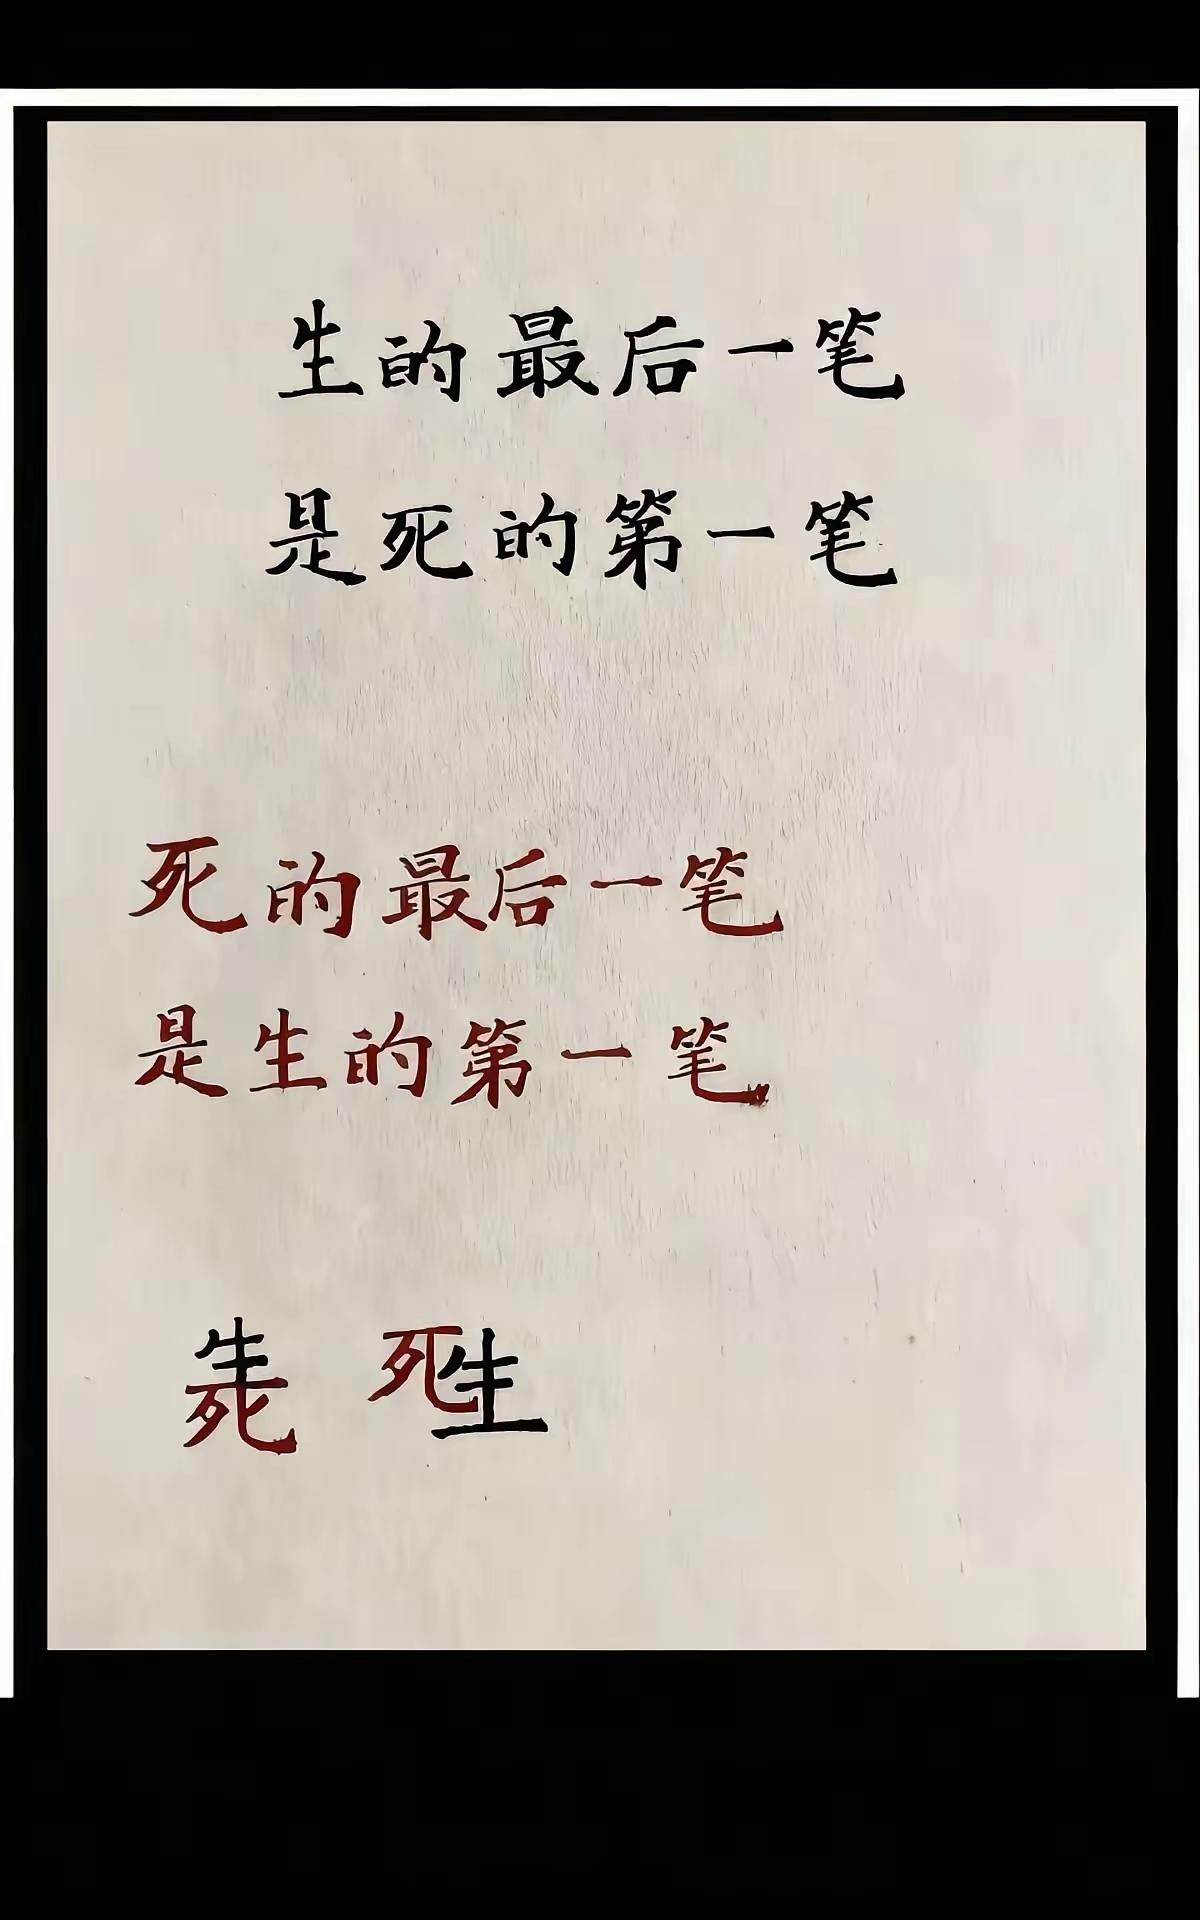 生的最后一笔
是死的第一笔
死的最后一笔
是生的第一笔
生死 死生